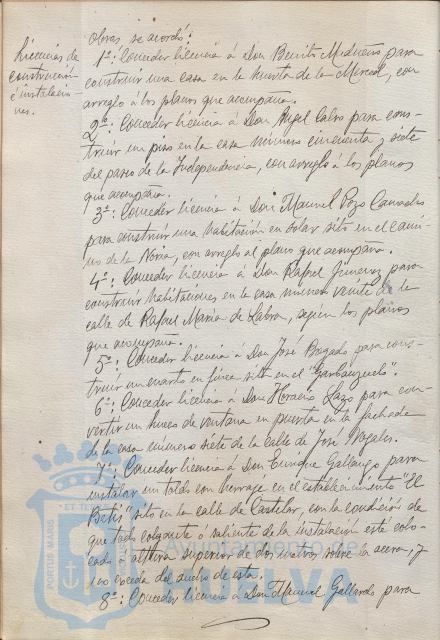 Licencias de
construcción
é instalacio-
nes.
obras, se acordó:
1º: Conceder licencia á Don Benito para
construir una casa en la huerta de la Merced, con
arreglo á los planos que acompaña.
2º: Conceder licencia á Don Angel Calvo para cons-
truir un piso en la casa número cincuenta y siete
del paseo de la Independencia, con arreglo á los planos
que acompaña.
3º: Conceder licencia á Don Manuel Pozo
para construir una habitación en solar sito en el cami-
no de la Noria, con arreglo al plano que acompaña.
4º: Conceder licencia á Don Rafael Jimenez para
construir habitaciones en la casa número veinte de la
calle de Rafael María de Labra, según los planos
que acompaña.
5º: Conceder licencia á Don José Bogado para cons-
truir un cuarto en finca sita en el "Garbanzuelo".
6º: Conceder licencia á Don Horacio Lazo para con-
vertir un hueco de ventana en puerta en la fachada
de la casa número siete de la calle de José Nogales.
7º: Conceder licencia á Don Enrique Gallango para
instalar un toldo con herrage en el establecimiento "El
Betis" sito en la calle de Castelar, con la condición de
que todo colgante ó saliente de la instalación esté colo-
cado á altura superior de dos metros sobre la acera, y
no exceda del ancho de esta.
8º: Conceder licencia á Don Manuel Gallardo para
PORTUS MARIS
ET TE
Ayuntamiento de
HUELVA